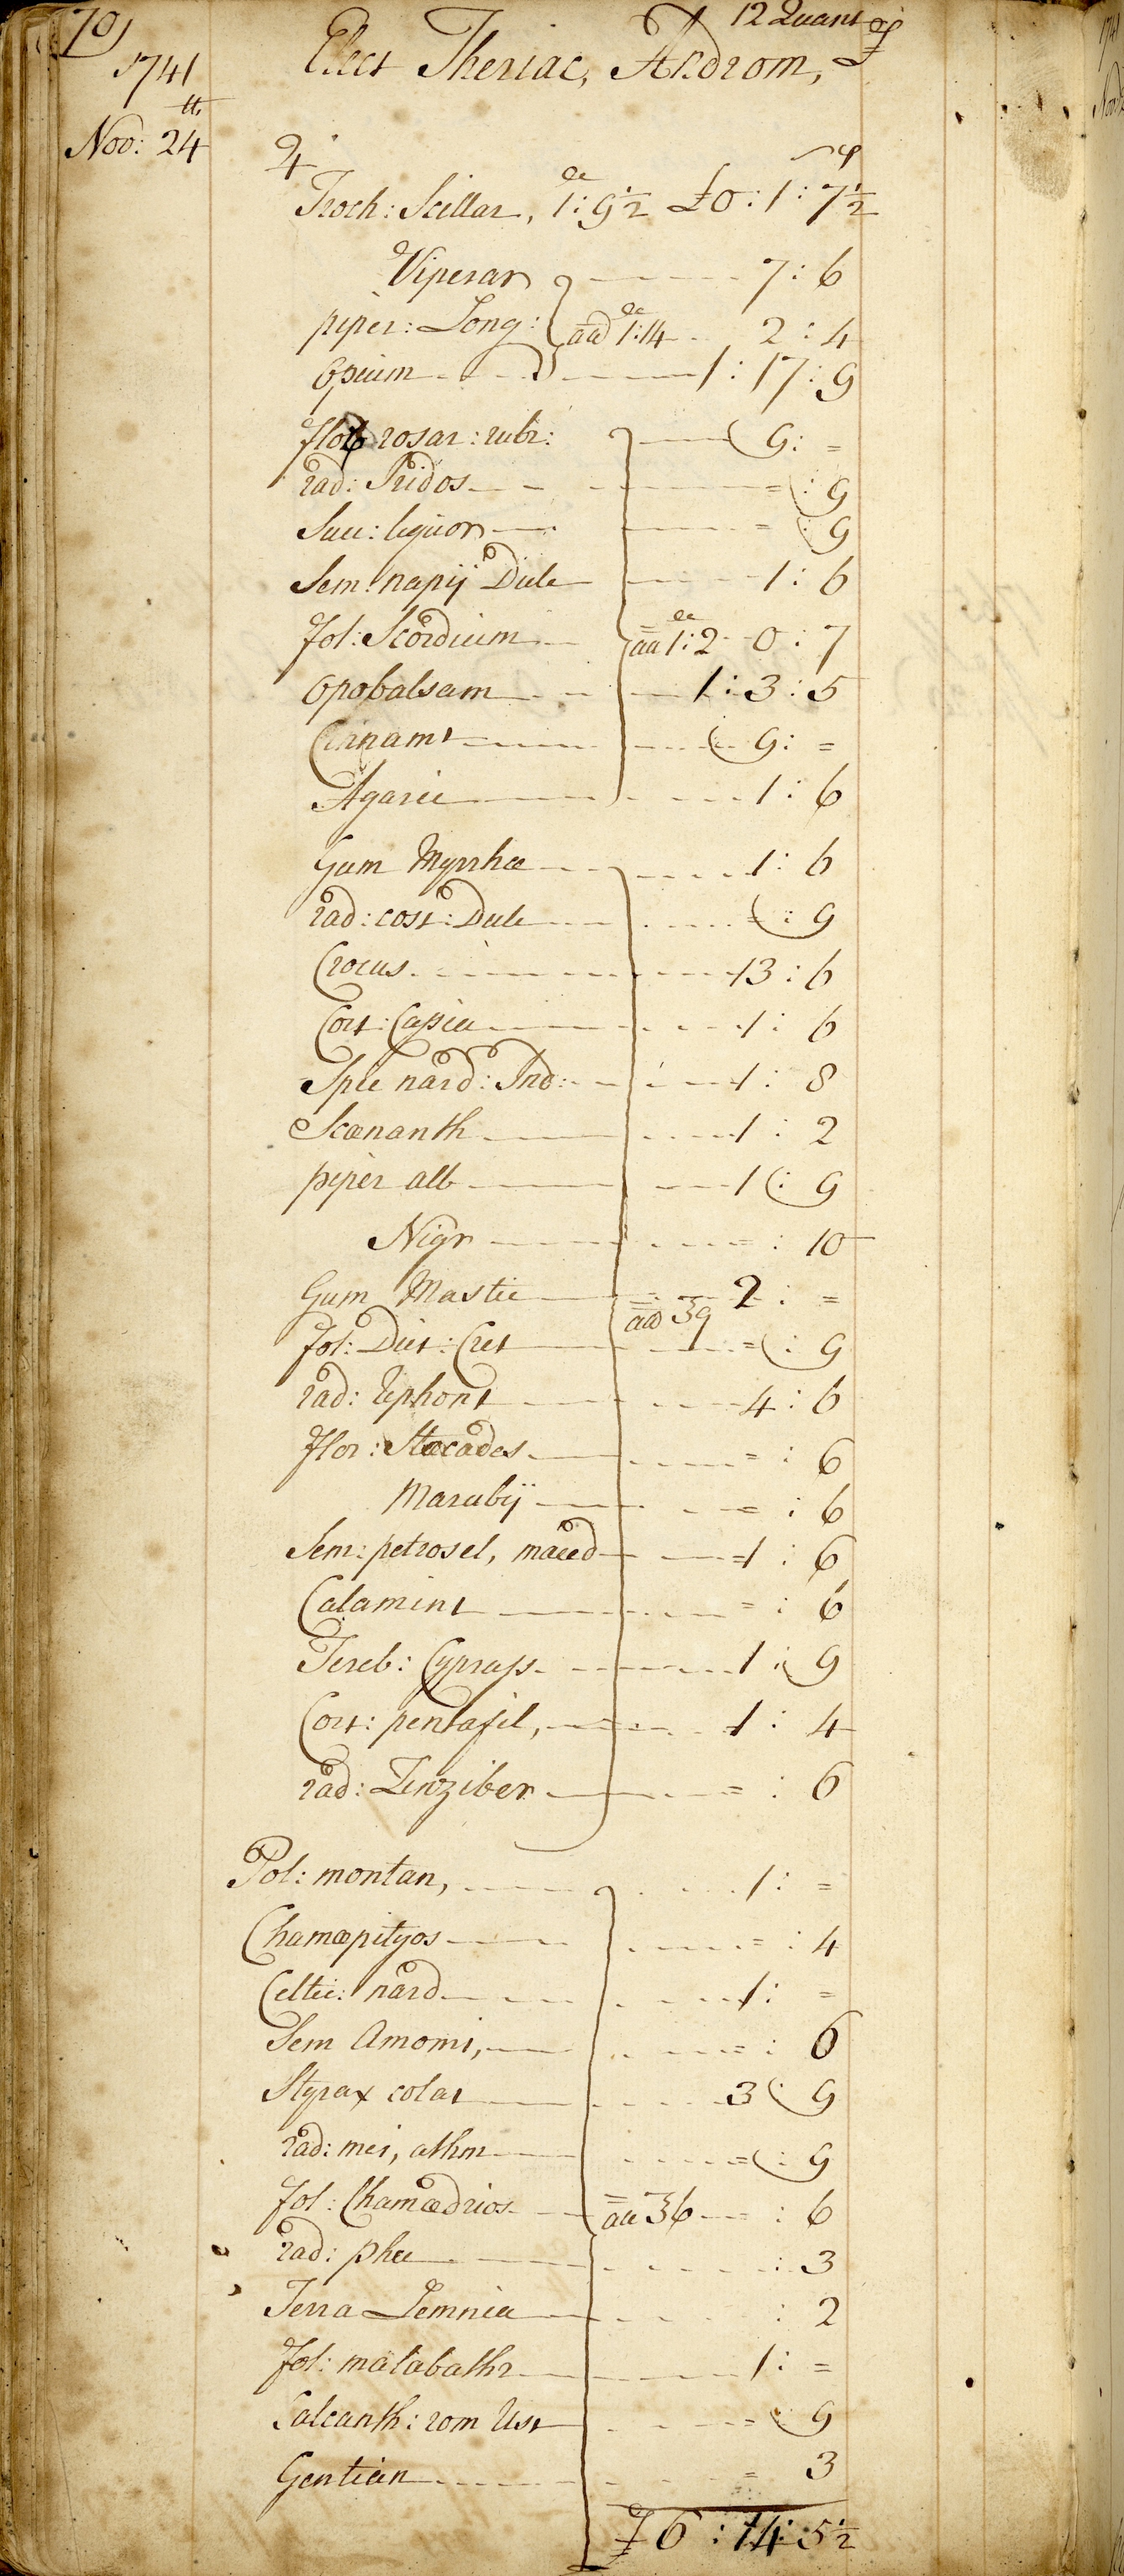 70)
1741
Nov: 24
Elect Theriac, Androm, 12 Quant
Troch: Scillar, 1:9½ £0:1:7½
Viperar 7:6
piper: Long: aa 1:14 2:4
Opium 1:17:9
flor rosar: rubr: 9:=
rad: Iridos =:9
Succ: liquor =:9
Sem: napij Dulc 1:6
fol: Scordium aa 1:2 0:7
Opobalsam 1:3:5
Cinnamt 9:=
Agaric 1:6
Gum Myrrhæ 1:6
rad: cost: Dulc =:9
Crocus 13:6
Cort: Cassia 1:6
Spic nard: Ind: 1:8
Scænanth 1:2
piper alb 1:9
Nigr =:10
Gum Mastic 2:=
aa ℥9
fol: Dict: Cret =:9
rad: rephont 4:6
flor: Stæcados =:6
Marubij =:6
Sem: petrosel, maced 1:6
Calamint =:6
Tereb: Cyprass 1:9
Cort: pentafil, 1:4
rad: Zinziber =:6
Pol: montan, 1:=
Chamæpityos =:4
Celtic: nard 1:=
Sem Amomi, =:6
Styrax colat 3:9
rad: mei, athm =:9
fol: Chamædrios aa ℥6 =:6
rad: phu :3
Terra Lemnia :2
fol: malabathr 1:=
Calcanth: rom Ust =:9
Gentian = 3
£6:14:5½